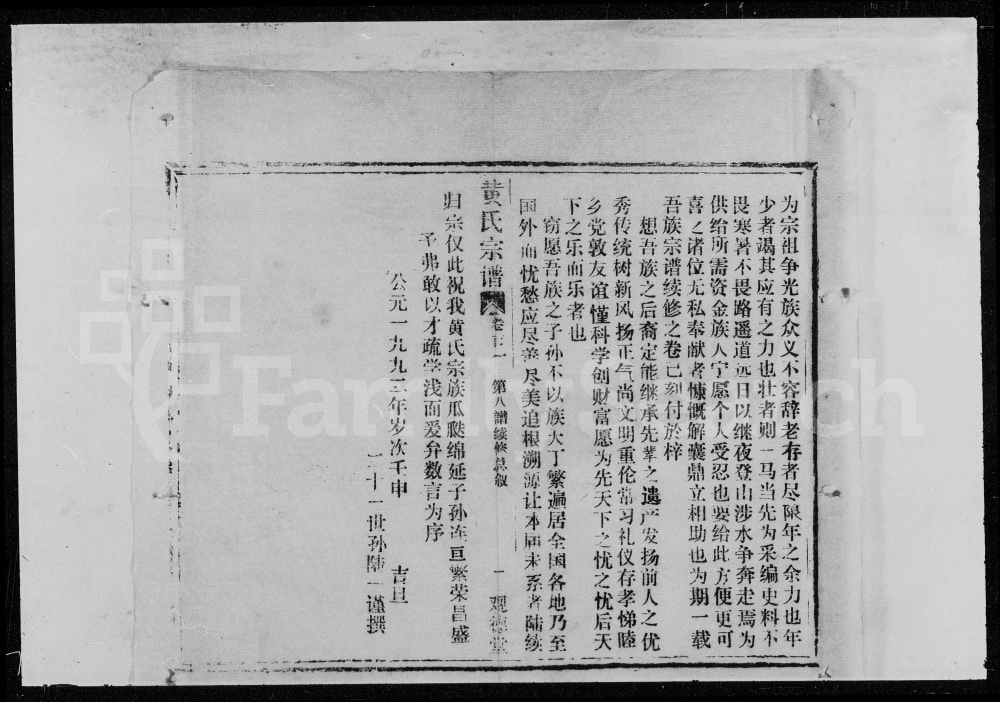 为宗祖争光族众义不容辞老存者尽限年之余力也年
少者竭其应有之力也壮者则一马当先为采编史料不
畏寒暑不畏路遥道远日以继夜登山涉水争奔走焉为
供给所需资金族人宁愿个人受忍也要给此方便更可
喜之诸位无私奉献者慷慨解囊鼎立相助也为期一载
吾族宗谱续修之卷已刻付於梓
想吾族之后裔定能继承先辈之遗产发扬前人之优
秀传统树新风扬正气尚文明重伦常习礼仪存孝悌睦
乡党敦友谊懂科学创财富愿为先天下之忧之忧后天
下之乐而乐者也
窃愿吾族之子孙不以族大丁繁遍居全国各地乃至
国外而忧愁应尽善尽美追根溯源让本届未系者陆续
黄氏宗谱 卷首一 第八谱续修总叙 一 观德堂
归宗仅此祝我黄氏宗族瓜瓞绵延子孙连亘繁荣昌盛
予弗敢以才疏学浅而爰弁数言为序
公元一九九三年岁次壬申 吉旦
二十一世孙陆一谨撰
FamilySearch